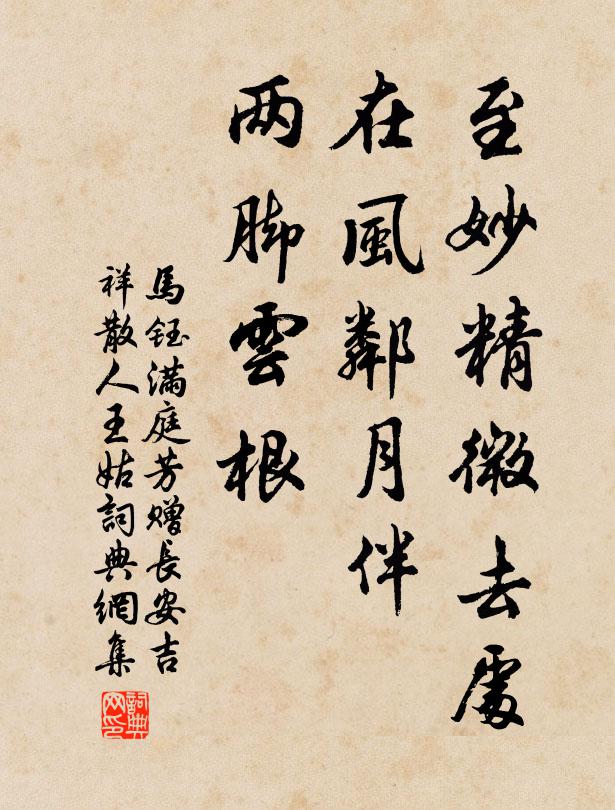 至妙精微去處
在風鄰月伴
两脚雲根
馬鈺滿庭芳赠長安吉
祥散人王姑詞典網集
詞典
网印